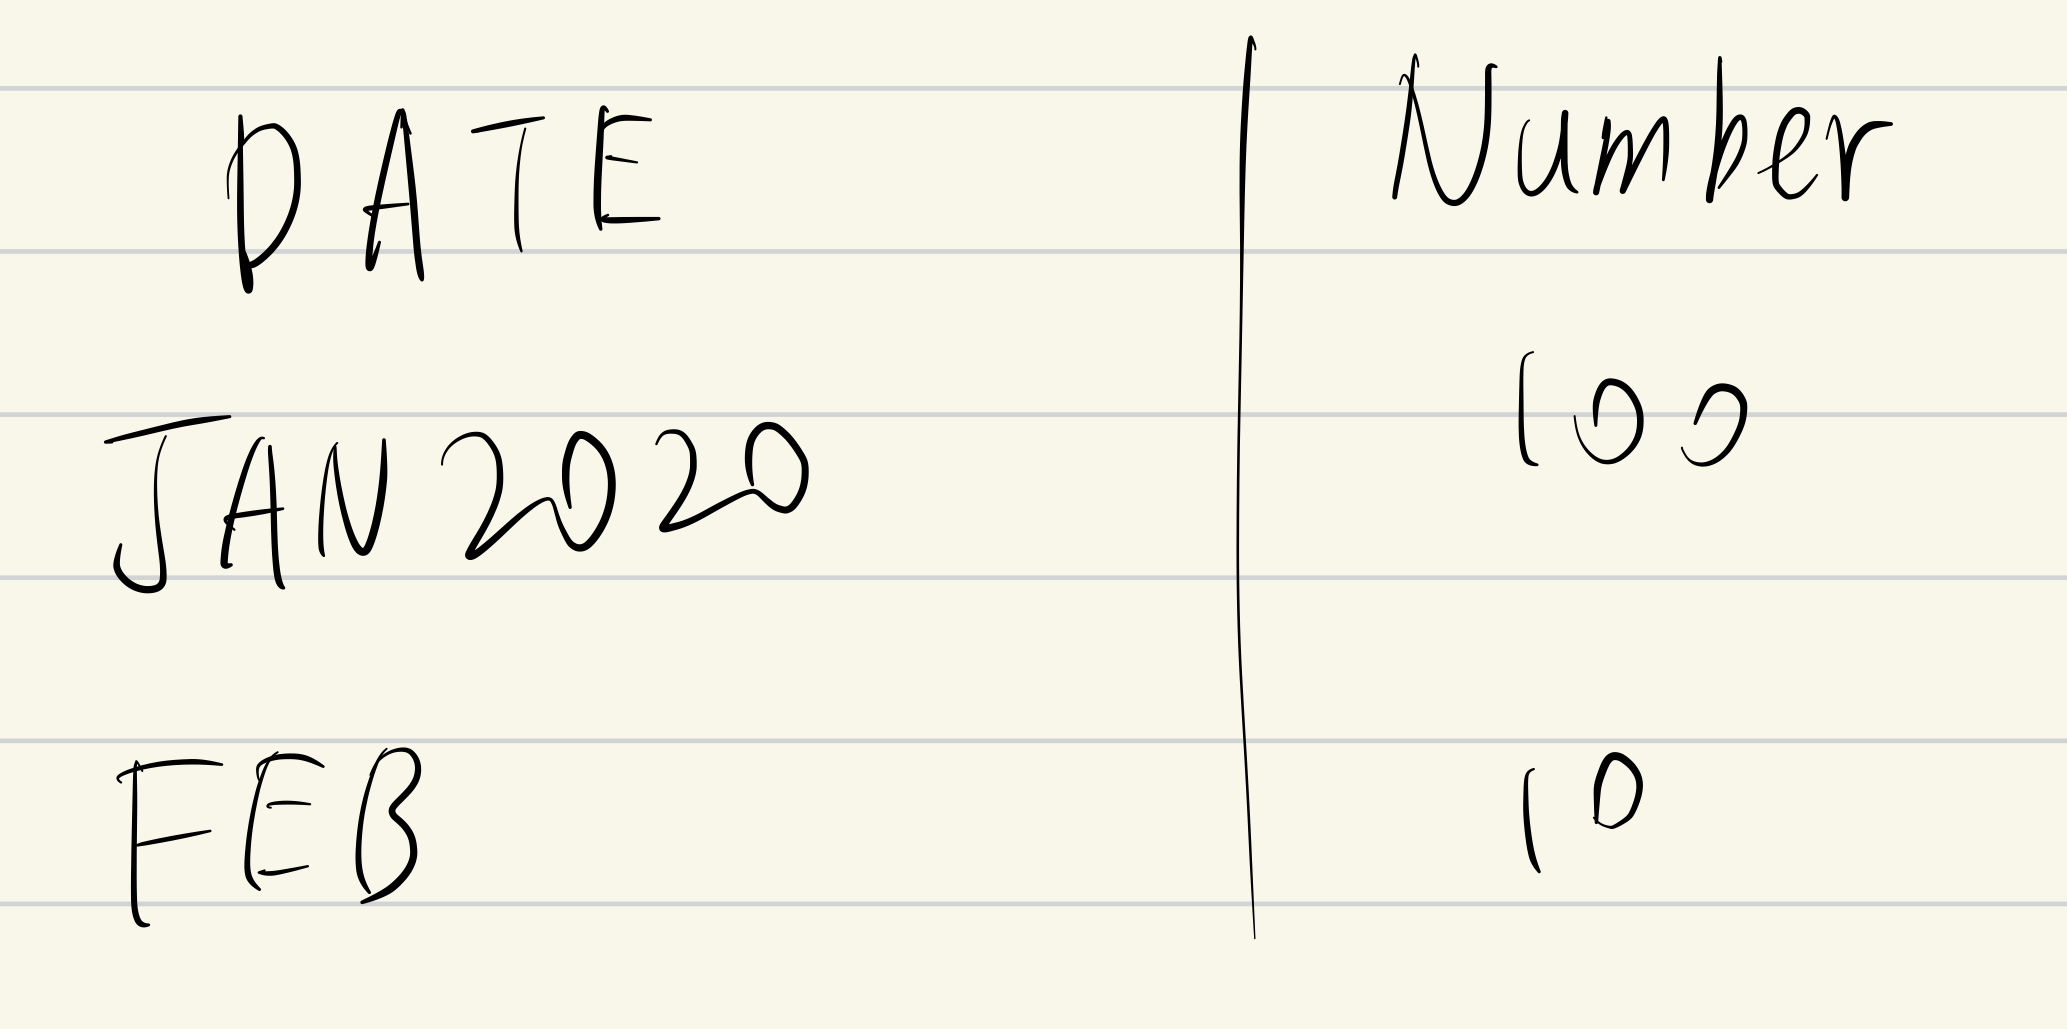 DATE | Number
JAN 2020 | 100
FEB | 10